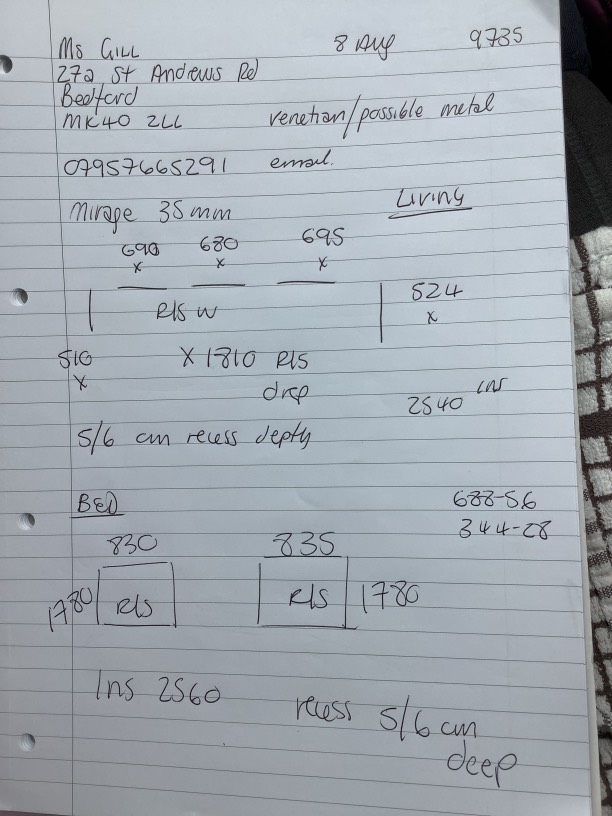 Ms GILL 8 Aug 9735
27a St Andrews Rd
Bedford
MK40 2LL venetian/possible metal
07957665291 email.
Mirage 35mm Living
690 680 695
x x x
R/S W 524
x
510 x 1810 R/S
x drop
2540 ins
5/6 cm recess depth
BED 688-56
344-28
830 835
1780 R/S R/S 1780
Ins 2560 recess 5/6 cm
deep